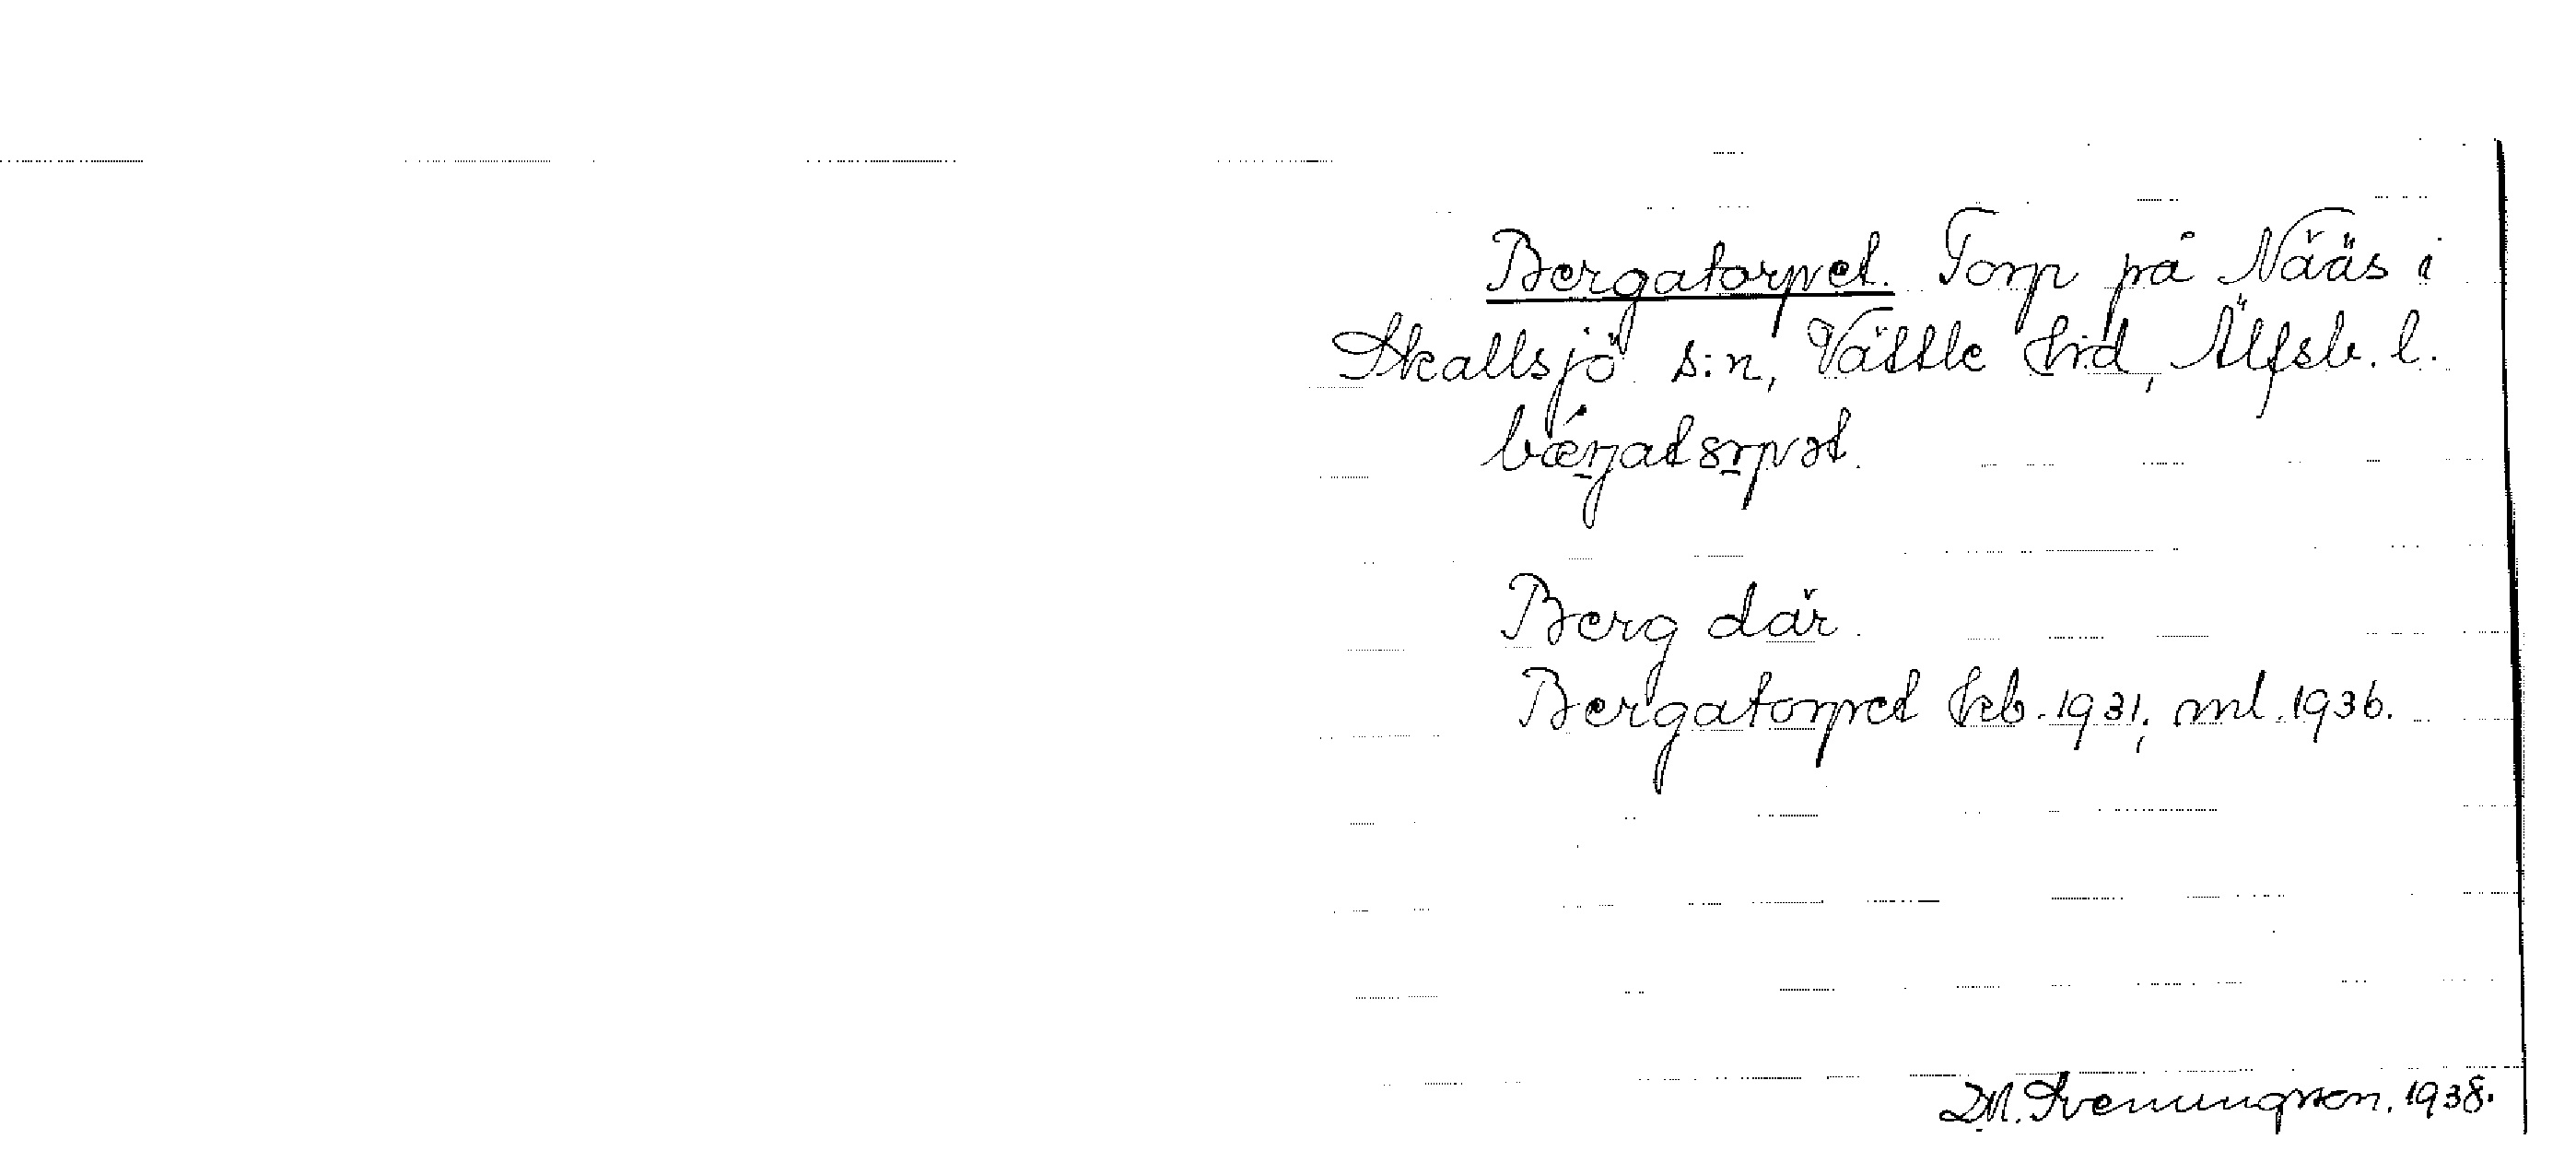 Bergatorpet. Torp på Nääs i
Skallsjö s:n, Vättle hd, Älfsb. l.
Berg där.
Bergatorpet hkb. 1931, ml. 1936.
D.M. Svenungsson. 1938.